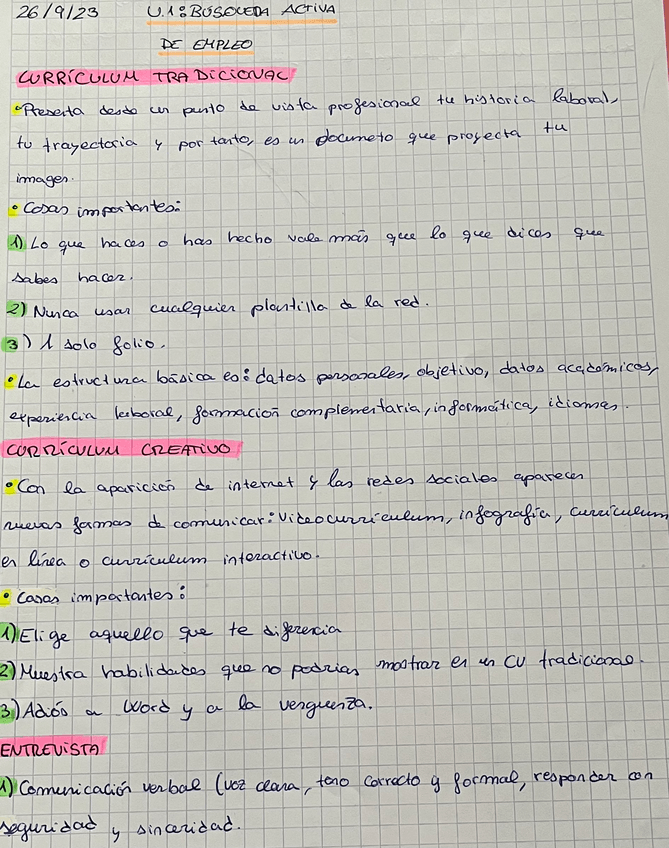 26/9/23 U.1: BÚSQUEDA ACTIVA
DE EMPLEO
CURRÍCULUM TRADICIONAL
• Presenta desde un punto de vista profesional tu historia laboral,
tu trayectoria y por tanto, es un documeto que proyecta tu
imagen.
• Cosas importantes:
1) Lo que haces o has hecho vale más que lo que dices que
sabes hacer.
2) Nunca usar cualquier plantilla de la red.
3) 1 solo folio.
• La estructura básica es: datos personales, objetivo, datos académicos,
experiencia laboral, formación complementaria, informática, idiomas.
CURRÍCULUM CREATIVO
• Con la aparición de internet y las redes sociales aparecen
nuevas formas de comunicar: videocurriculum, infografía, curriculum
en línea o curriculum interactivo.
• Cosas importantes:
1) Elige aquello que te diferencia
2) Muestra habilidades que no podrías mostrar en un CV tradicional.
3) Adiós a Word y a la verguenza.
ENTREVISTA
1) Comunicación verbal (voz clara, tono correcto y formal, responder con
seguridad y sinceridad.